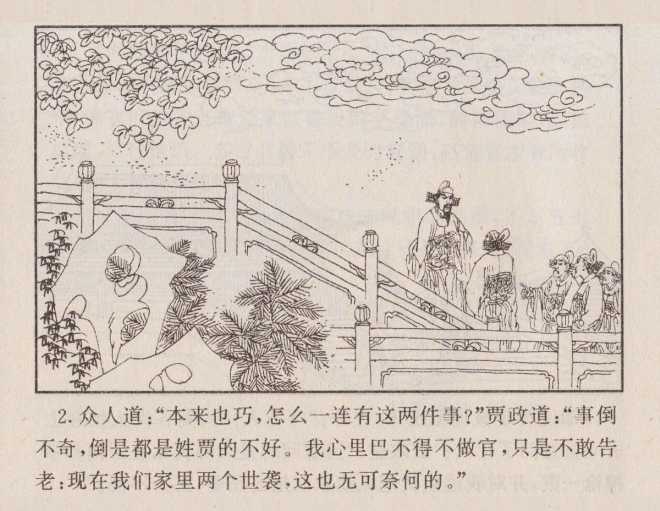 2. 众人道：“本来也巧，怎么一连有这两件事？”贾政道：“事倒
不奇，倒是都是姓贾的不好。我心里巴不得不做官，只是不敢告
老；现在我们家里两个世袭，这也无可奈何的。”